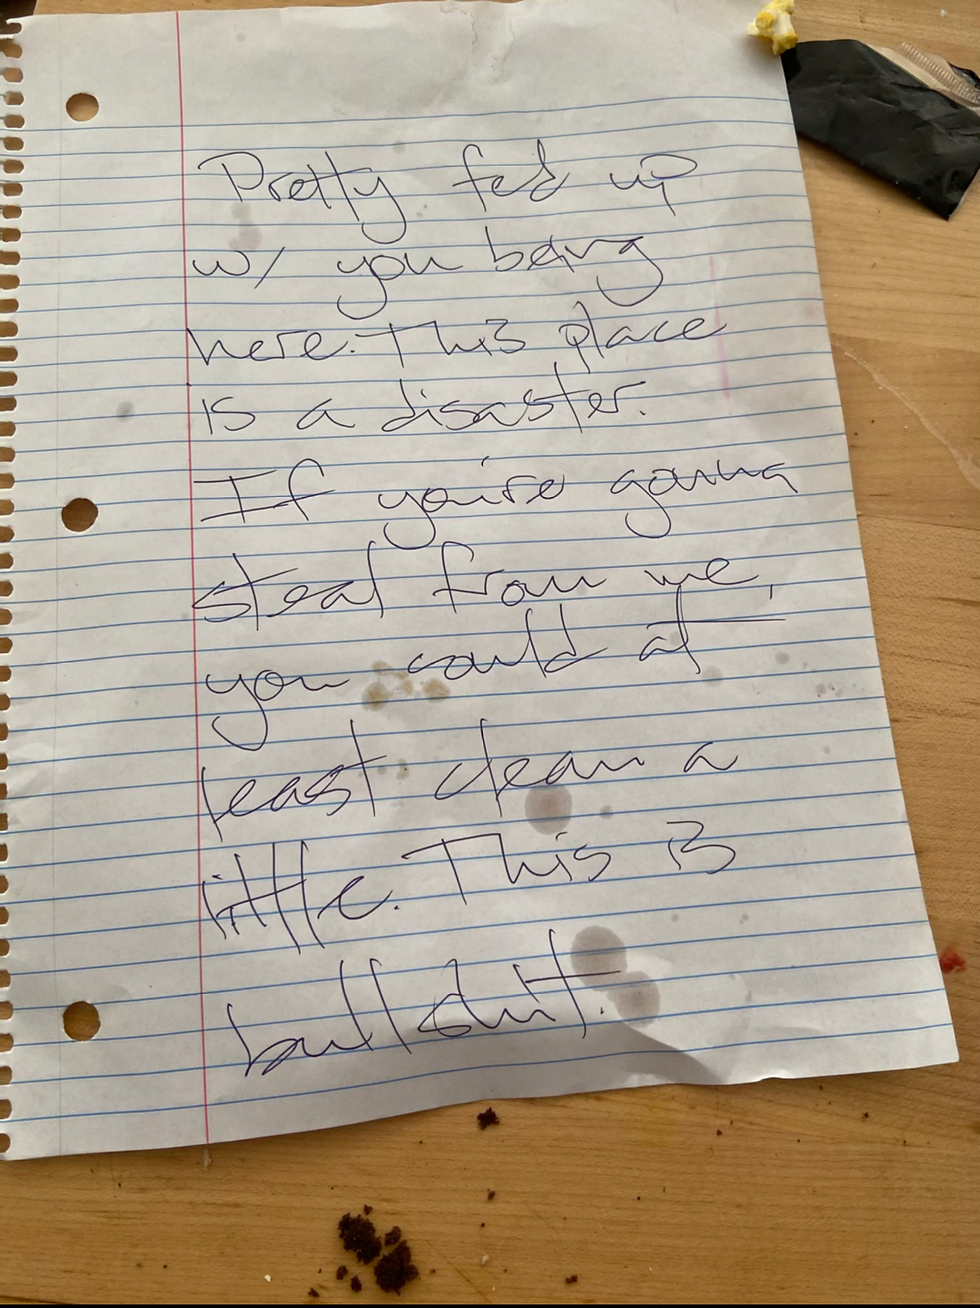 Pretty fed up
w/ you being
here. This place
is a disaster.
If you're gonna
steal from me,
you could at
least clean a
little. This is
bullshit.